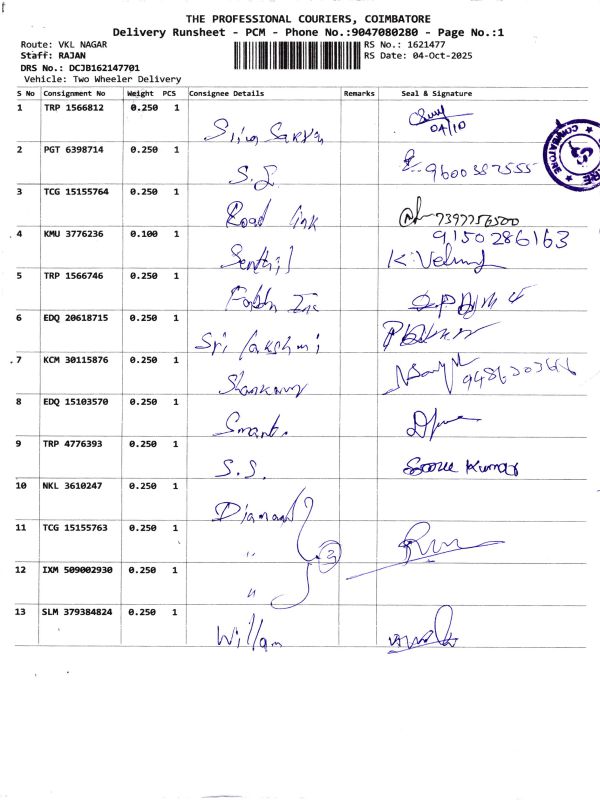 THE PROFESSIONAL COURIERS, COIMBATORE
Delivery Runsheet - PCM - Phone No.:9047080280 - Page No.:1
Route: VKL NAGAR RS No.: 1621477
Staff: RAJAN RS Date: 04-Oct-2025
DRS No.: DCJB162147701
Vehicle: Two Wheeler Delivery
S No Consignment No Weight PCS Consignee Details Remarks Seal & Signature
1 TRP 1566812 0.250 1
04/10
2 PGT 6398714 0.250 1
S.S.
3 TCG 15155764 0.250 1
Road link 7397756500
4 KMU 3776236 0.100 1 9150286163
Senthil K.Velmurug
5 TRP 1566746 0.250 1
6 EDQ 20618715 0.250 1
Sri lakshmi
7 KCM 30115876 0.250 1
8 EDQ 15103570 0.250 1
9 TRP 4776393 0.250 1
S.S. Kumar
10 NKL 3610247 0.250 1
Diamond
11 TCG 15155763 0.250 1
" 3
12 IXM 509002930 0.250 1
"
13 SLM 379384824 0.250 1
William
COIMBATORE